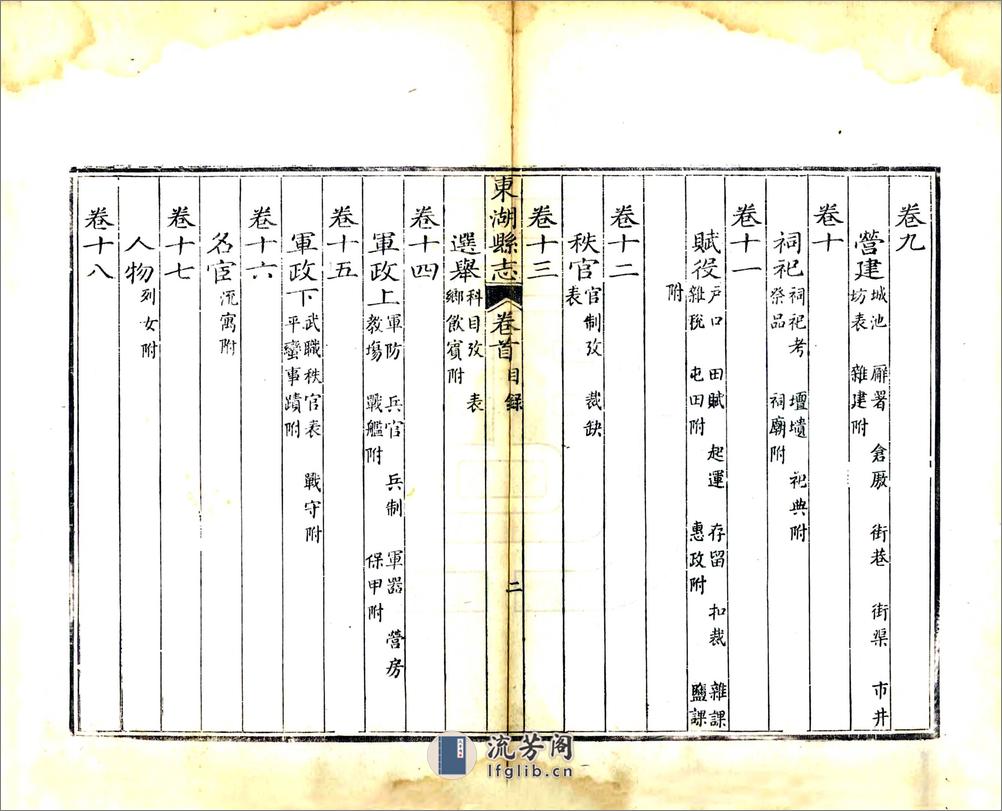 卷九
營建 城池 廨署 倉廒 街巷 街渠 市井
坊表 雜建附
卷十
祠祀 祠祀考 壇壝 祀典附
祭品 祠廟附
卷十一
賦役 戸口 田賦 起運 存留 扣裁 雜課
雜稅 屯田附 惠政附 鹽課
附
卷十二
秩官 官制攷 裁缺
表
卷十三
東湖縣志 卷首 目録 二
選舉 科目攷 表
鄉飲賓附
卷十四
軍政上 軍防 兵官 兵制 軍器 營房
教塲 戰艦附 保甲附
卷十五
軍政下 武職秩官表 戰守附
平蠻事蹟附
卷十六
名宦 流寓附
卷十七
人物 列女附
卷十八
流芳阁
lfglib.cn